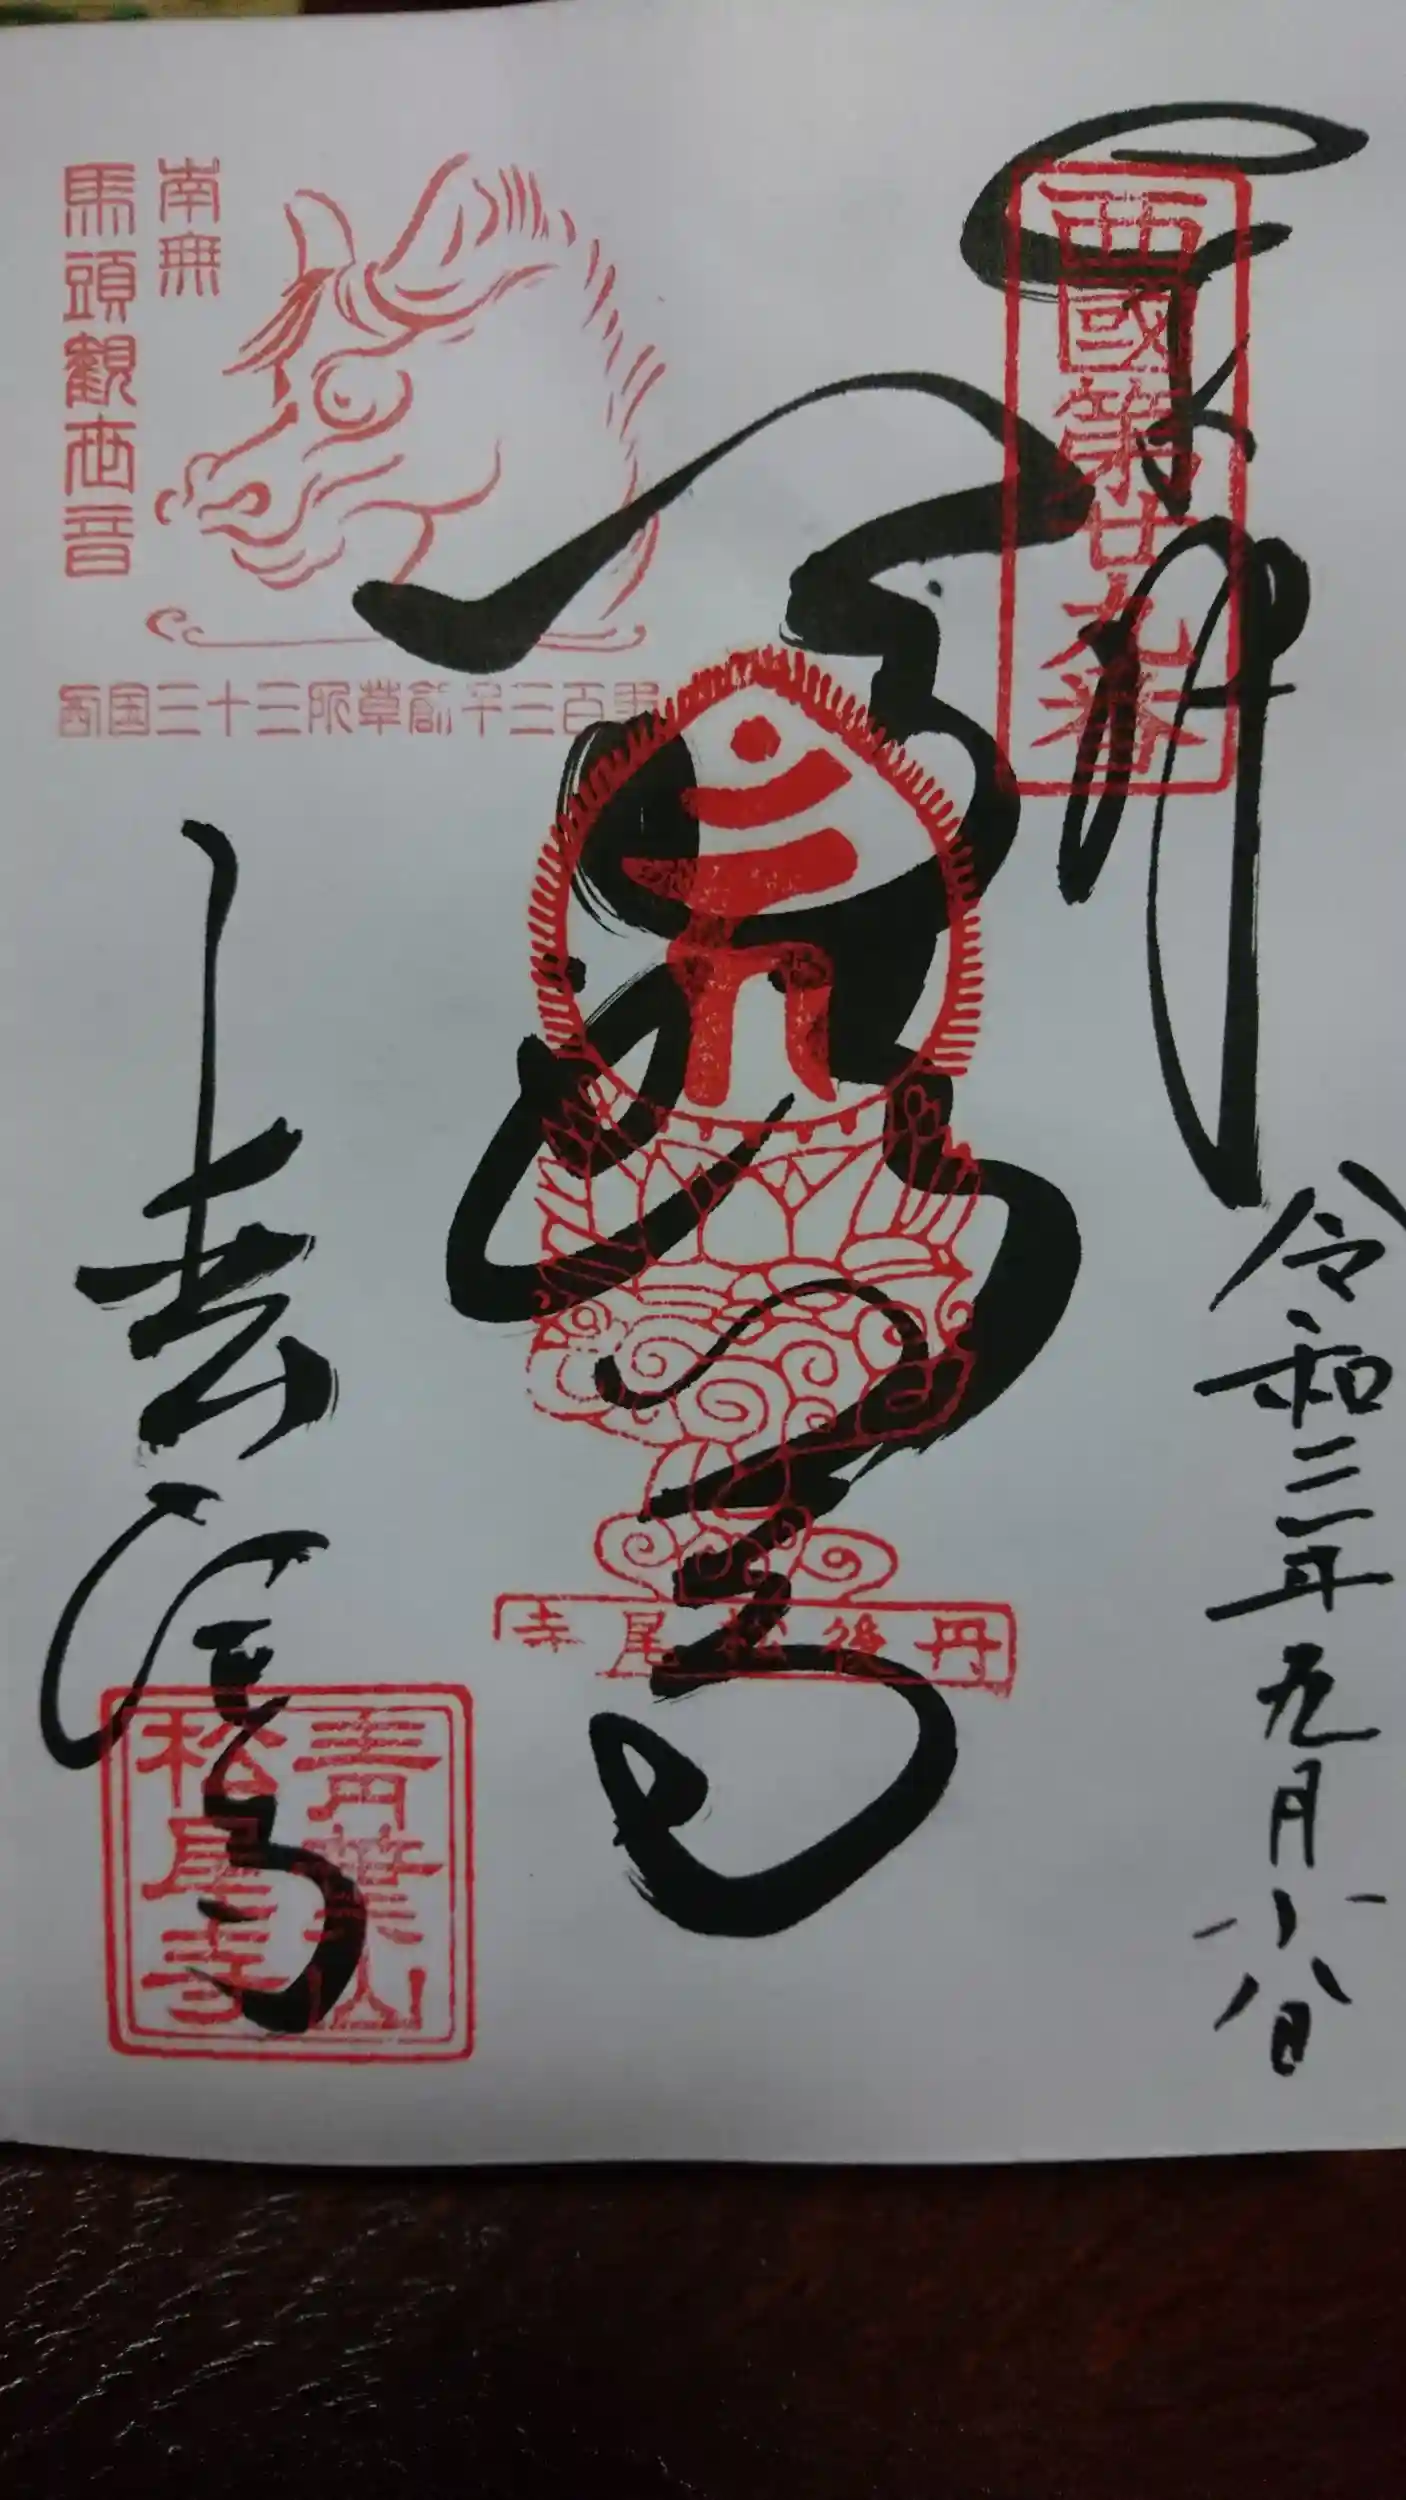 奉拝
西國第廿九番
令和三年九月
丹後松尾寺
南無
馬頭観世音
西国三十三所草創千三百年
松尾寺
青葉山
松尾寺